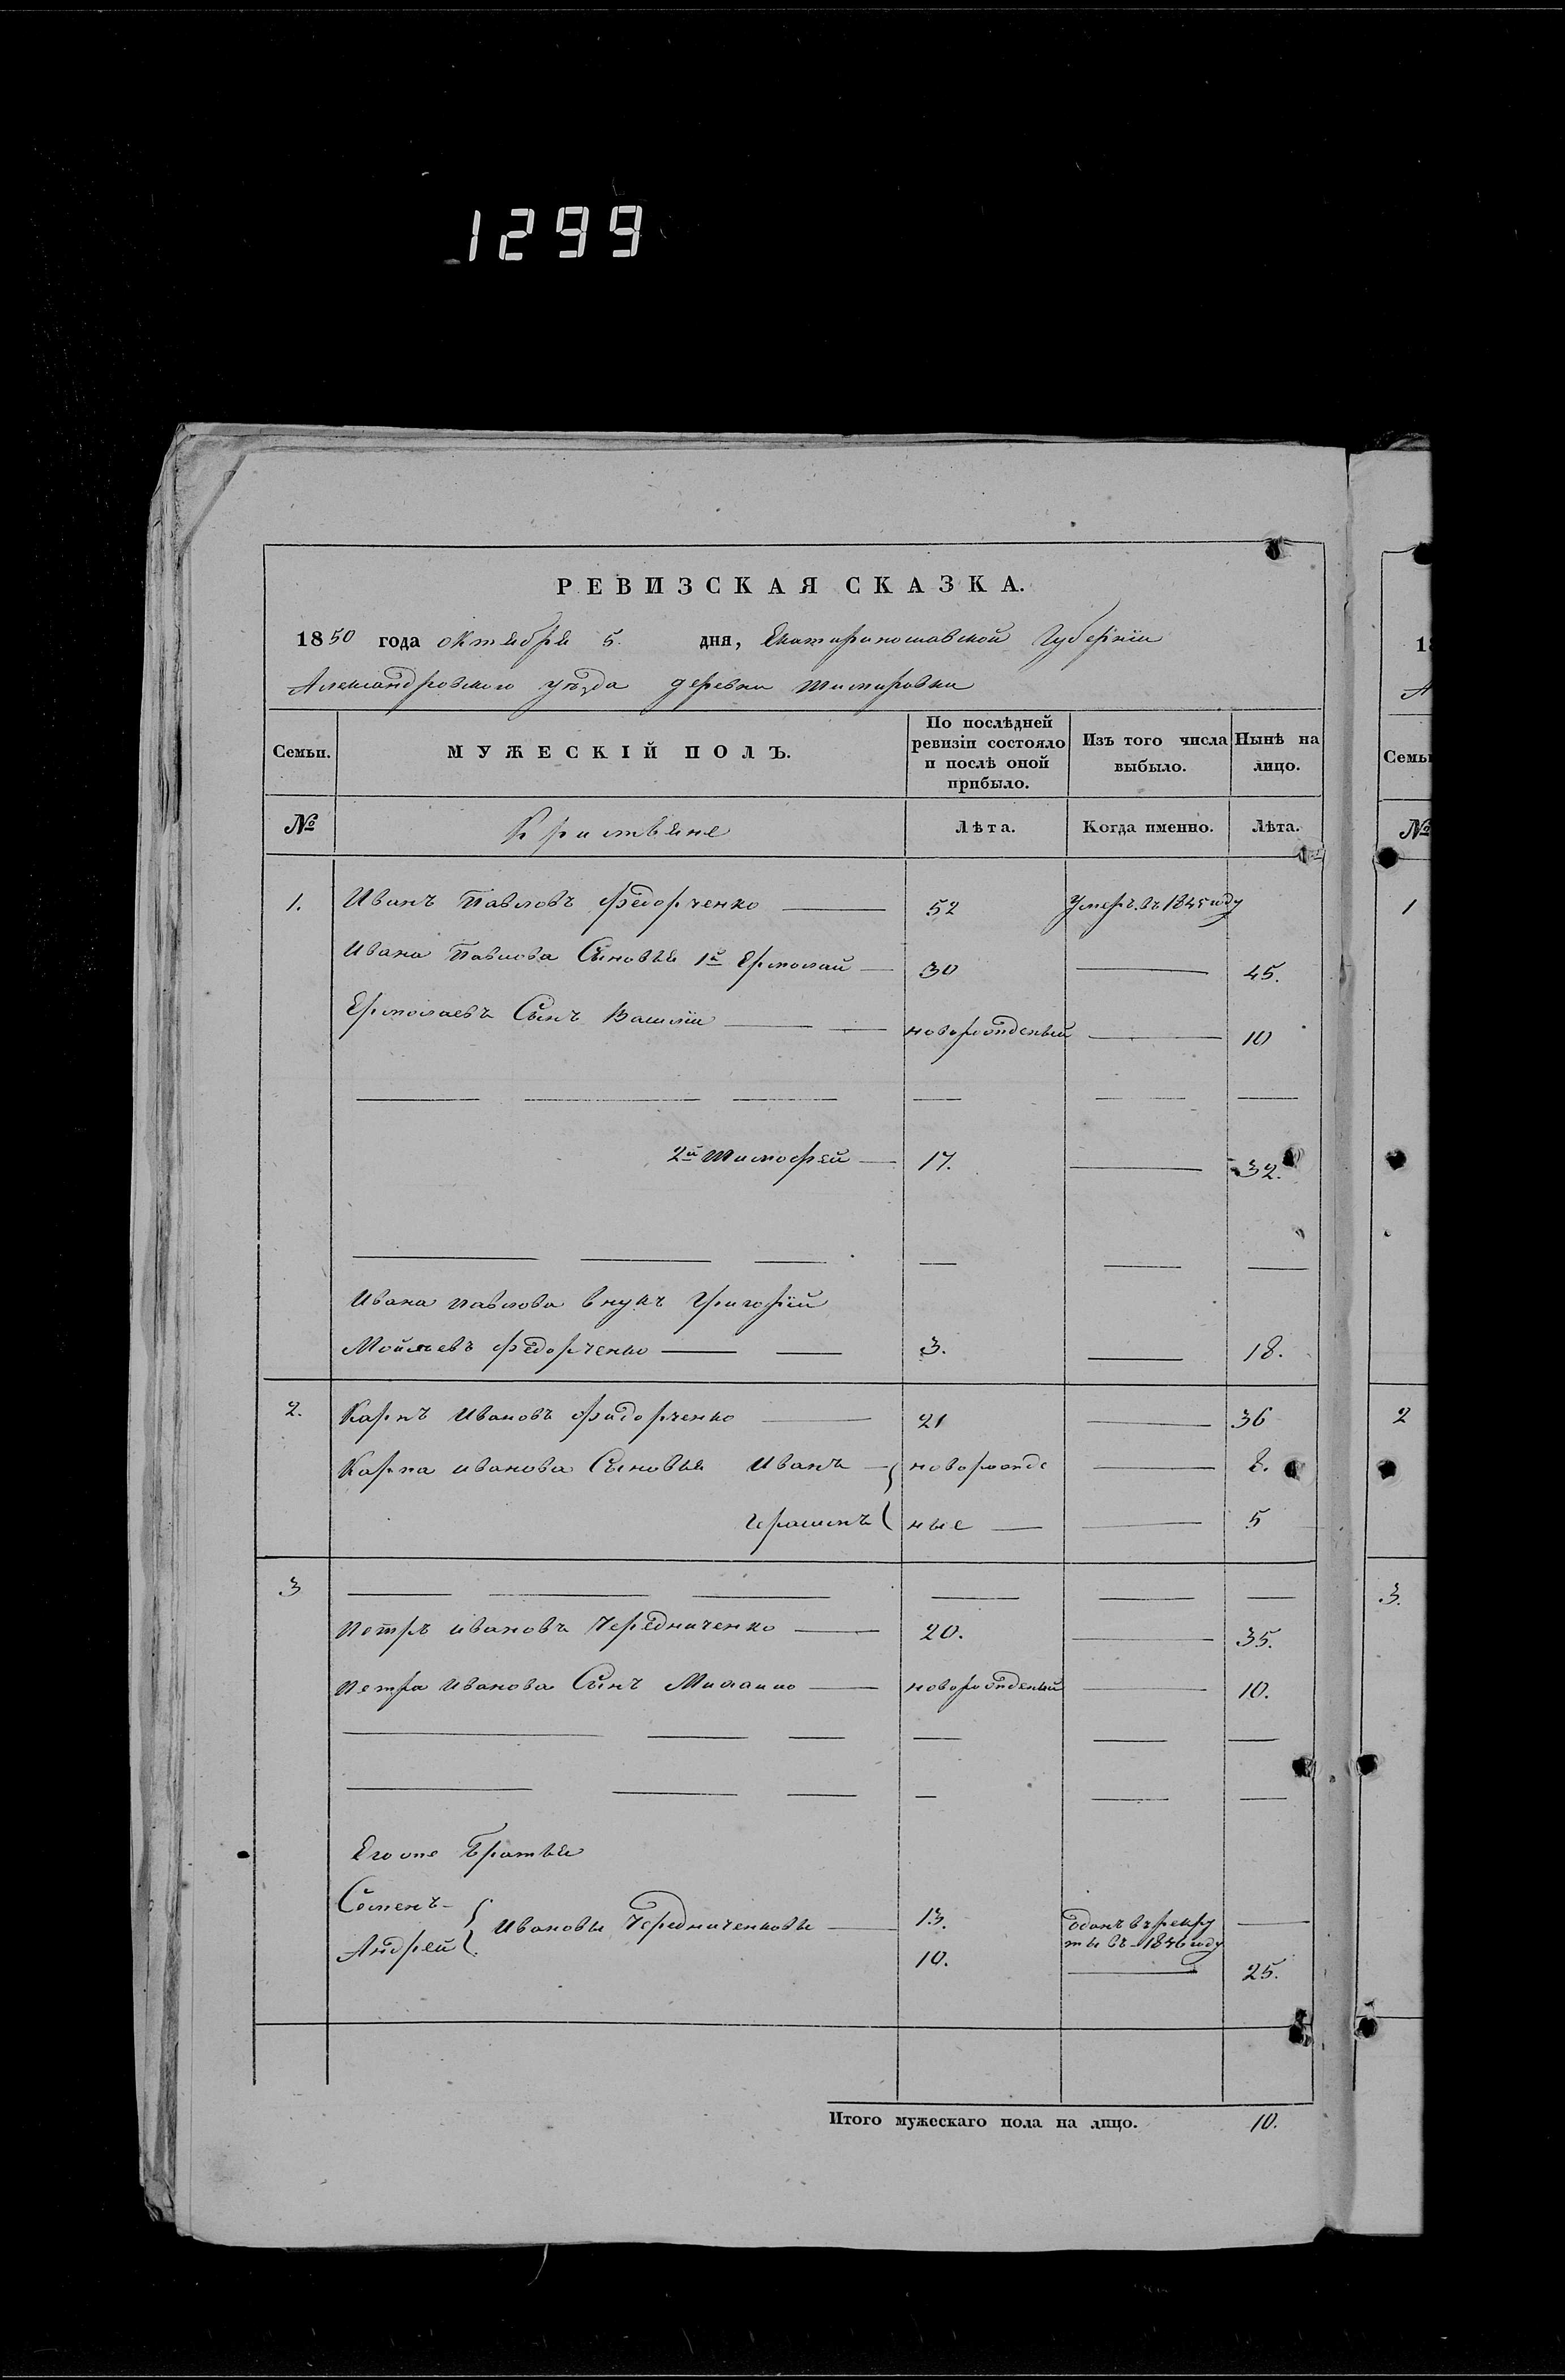 1299
РЕВИЗСКАЯ СКАЗКА.
1850 года октября 5. дня, Екатеринославской Губерніи
Александровскаго уѣзда деревни
Семьи. МУЖЕСКІЙ ПОЛЪ. По послѣдней ревизіи состояло и послѣ оной прибыло. Изъ того числа выбыло. Нынѣ на лицо.
№ Кристьяне Лѣта. Когда именно. Лѣта.
1. Иванъ Павловъ Федорченко 52 Умеръ въ 1845 году
Ивана Павлова Сыновья 1й Ермолай 30 45.
Ермолаевъ Сынъ Василіи новорожденый 10
2й Тимофей 17. 32.
Ивана Павлова внукъ Григорій
Мойсѣевъ Федорченко 3. 18.
2. Карпъ Ивановъ Федорченко 21 36
Карпа иванова Сыновья Иванъ новорожде 8.
Герасимъ ные 5
3
Петръ ивановъ Чередниченко 20. 35.
Петра Иванова Сынъ новорожденый 10.
Его же Братья
Семенъ Ивановы Чередниченковы 13. оданъ въ рекру
Андрей 10. ты въ 1846 году 25.
Итого мужескаго пола на лицо. 10.
18
А
Семьи
№
1
2
3.